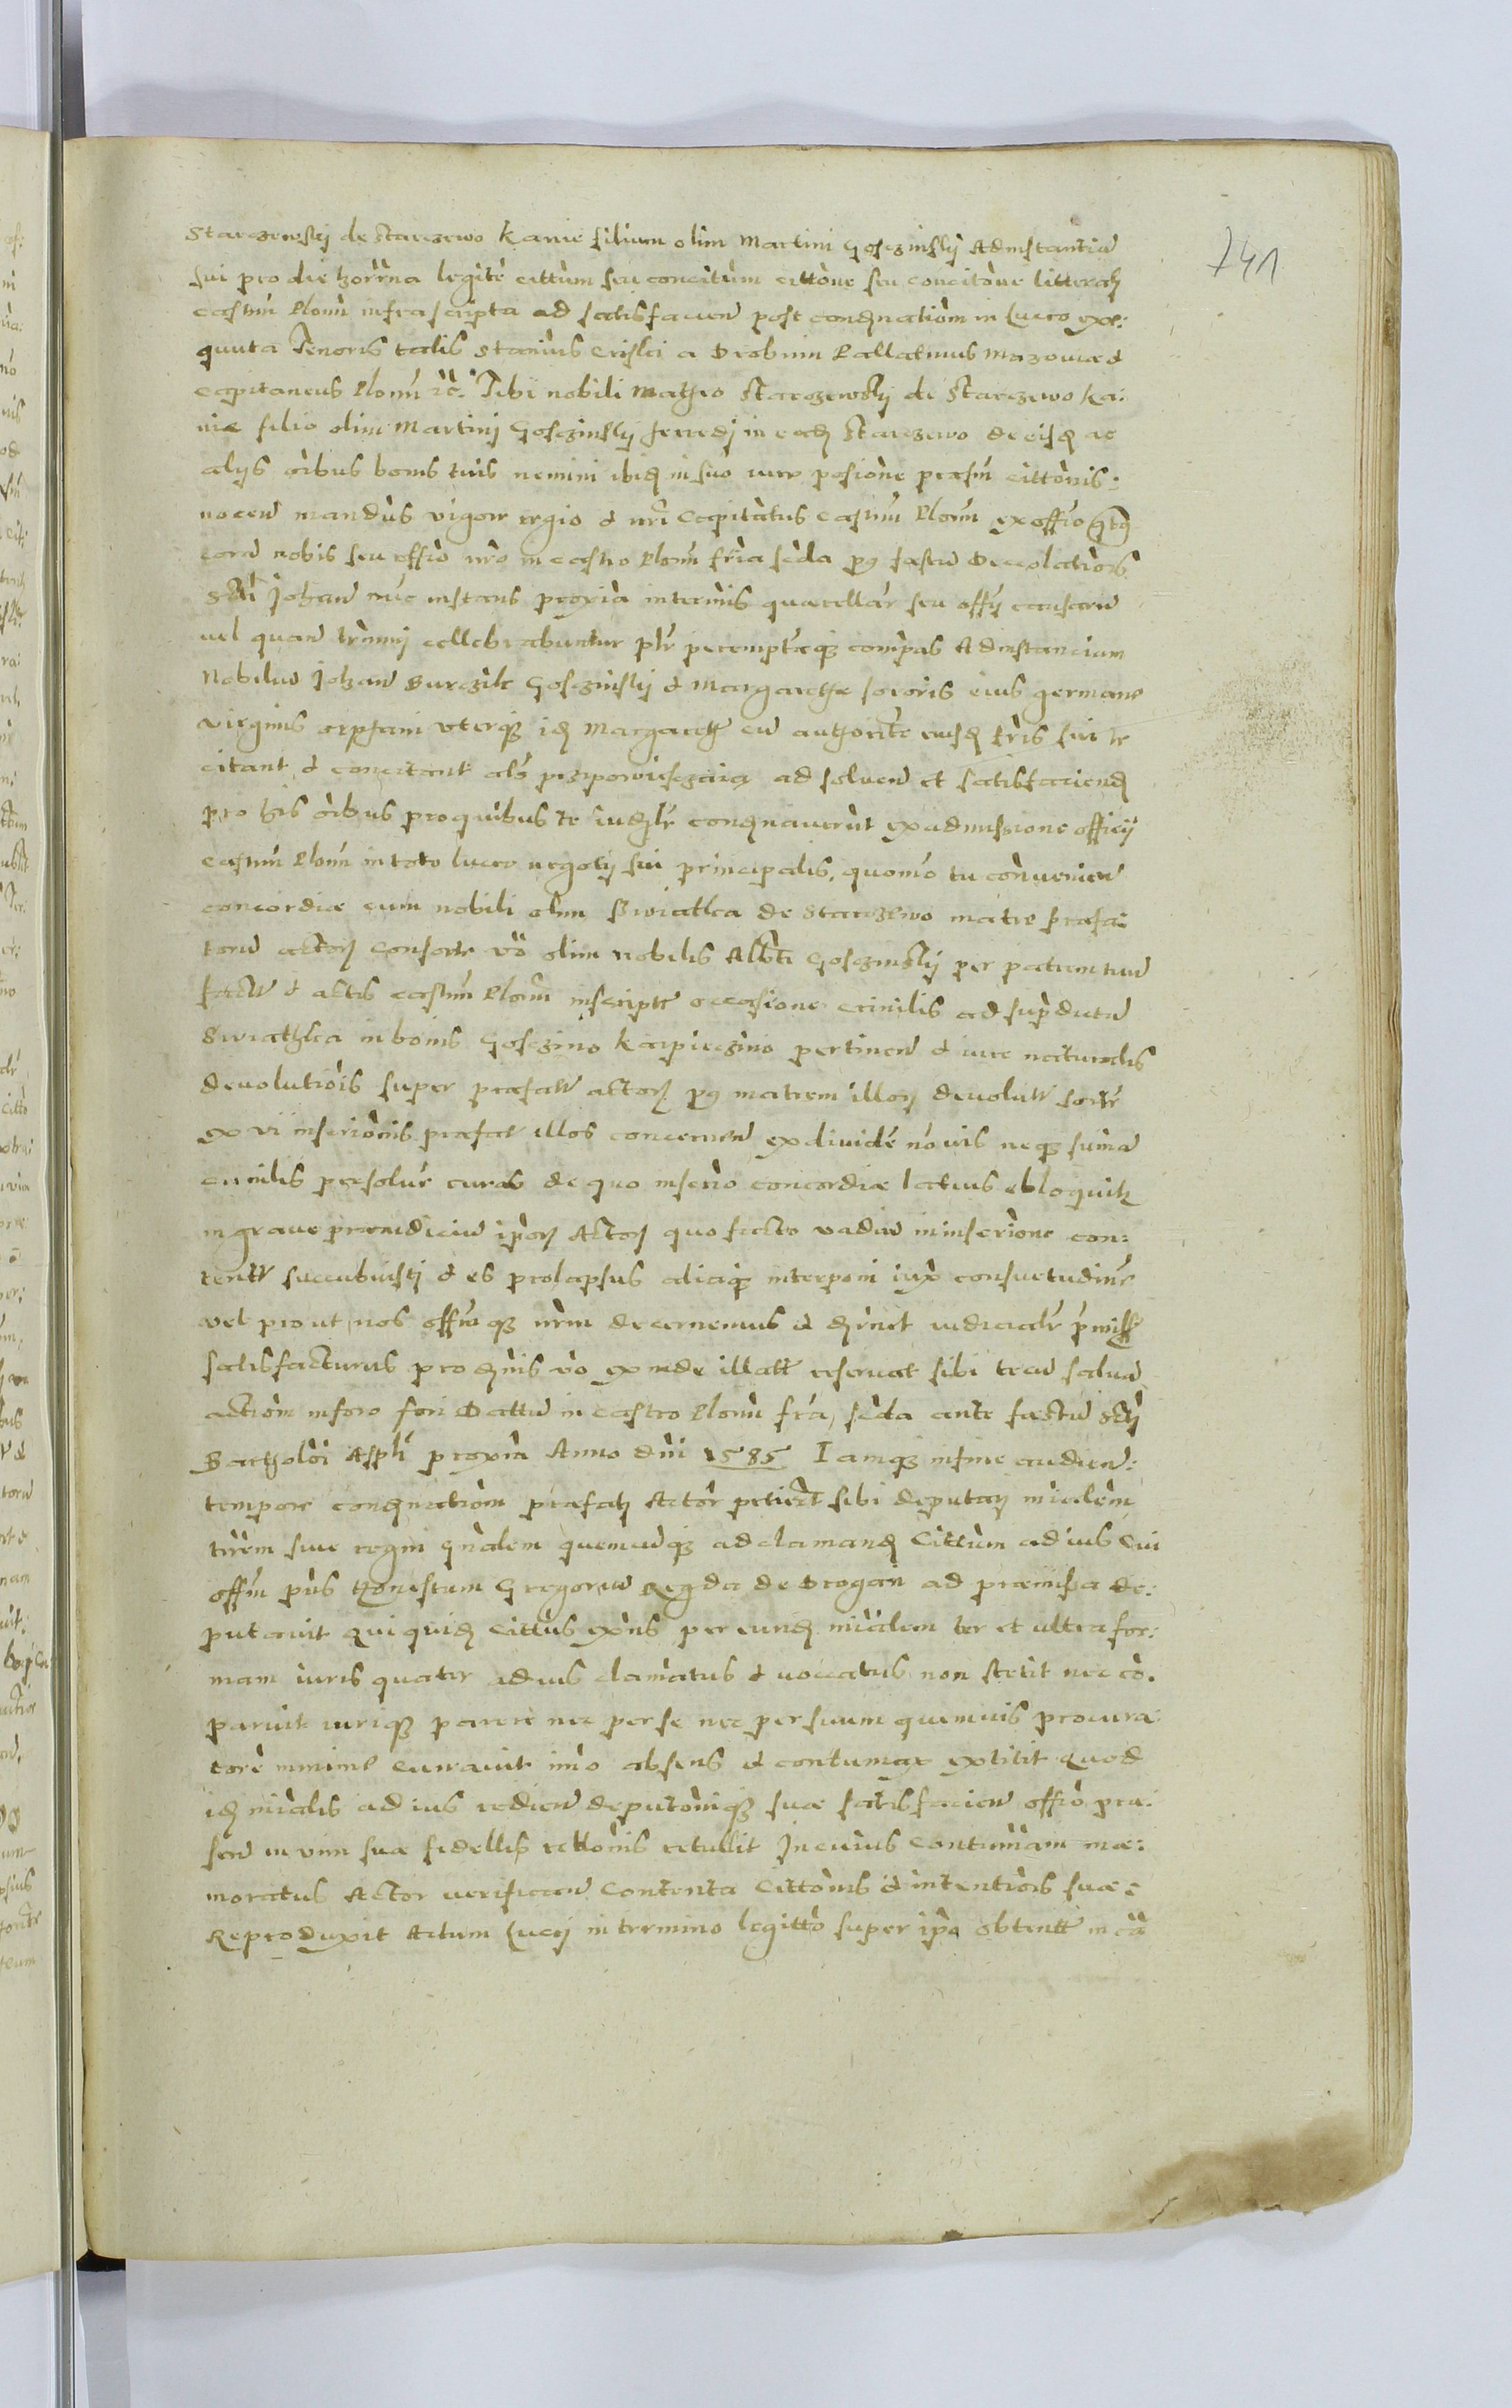 741
Starczewskÿ de Starczewo Kanie filium olim Martini Gosczinskÿ Ad instantiam
sui pro die hodierna legite cittum seu concitum cittone seu concitone litterali
castrum Plonen infrascripta ad satisfacien post condemnationem in lucro exe:
quuta Tenoris talis Stanius Crislci a Drobnin Pallatinus Mazoviae et
Capitaneus Plonen etc. Tibi nobili Matheo Starczewskÿ de Starczewo Ka:
nie filio olim Martinj Gosczinskÿ heredj in eadem Starczewo de eisdem ac
alijs oibus bonis tuis nemini ibidem in suo iure posione praesen cittonis:
nocen mandus vigore regio et nri Capitatus castren Plonen ex officio
coram nobis seu offio nro in castro Plonen feria scda post festum Decolationis
Scti Johan nunc instans proxia in terminis querellar seu officÿ causarum
vel quan termini cellebrabuntur plr peremptorieque compas Ad instanciam
Nobilium Johan Burczik Gosczinskÿ et Margarethae sororis eius germane
virginis orphani uterque idem Margareth cum authoritate eiusdem fris sui te
citant et concitant als przipowiesczaia ad solven et satisfaciendum
pro his oibus pro quibus te iudicialr condemnaverunt ex admissione officij
castren Plonen in toto lucro negotij sui principalis, quomo tu convenien
concordiae cum nobili olim Swiathka de Starczewo matre prefa:
torum actorum consorte vero olim nobilis Alberti Gosczinskÿ per patrem tuum
factae et actis castren Plonen inscriptae occasione crinilis ad supradutam
Swiathka in bonis Gosczino Karpieczino pertinen et iure naturalis
devolutiois super praefatos actores post matrem illorum devolutae sortis
ex vi inscriptionis praefatae illos concernen ex dividere non vis neque sumam
crinilis persolvere curas de quo inscriptio concordiae latius obloquitur
in grave praeiudicium ipsorum Actorum quo facto vadium in inscriptione con:
tentum succubuisti et es prolapsus aliaque interponi iuxta consuetudinem
vel prout nos offiumque nrum decernemus et decernet iudicialr praemissis
satisfacturus pro damnis vero exinde illatis reservat sibi tecum salvam
actiom in foro fori Datum in Castro Plonen fria scda ante festum Scti
Bartholoi Apli proxia Anno dni 1585 Iamque in fine audien:
tempore condemnationem praefatus Actor petiert sibi deputari mialem
terrem sive regni gnalem quemcunque ad clamandum cittum ad ius cui
offim prns honestum Gregorium Regda de Drogan ad praemissa de:
putavit Qui quidem cittus exns per eundem miialem ter et ultra for:
mam iuris quater ad ius clamatus et voccatus non stetit nec com
paruit iurique parere nec per se nec per suum quemvis procura:
torem minime curavit imo absens et contumax extitit Quod
idem mialis ad ius redien deputonique suae satisfacien offio prae:
sen in vim suae fidellis rellonis retullit In cuius contumciam me:
moratus Actor verifican contenta cittonis et intentiois suae
Reproduxit Actum lucrj in termino legitto super ipso obtentum in ca